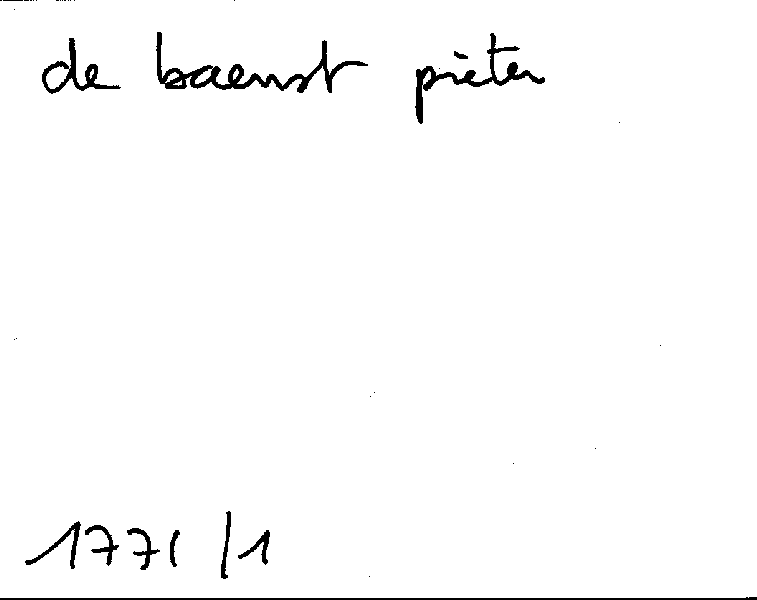 de baenst pieter
1771/1